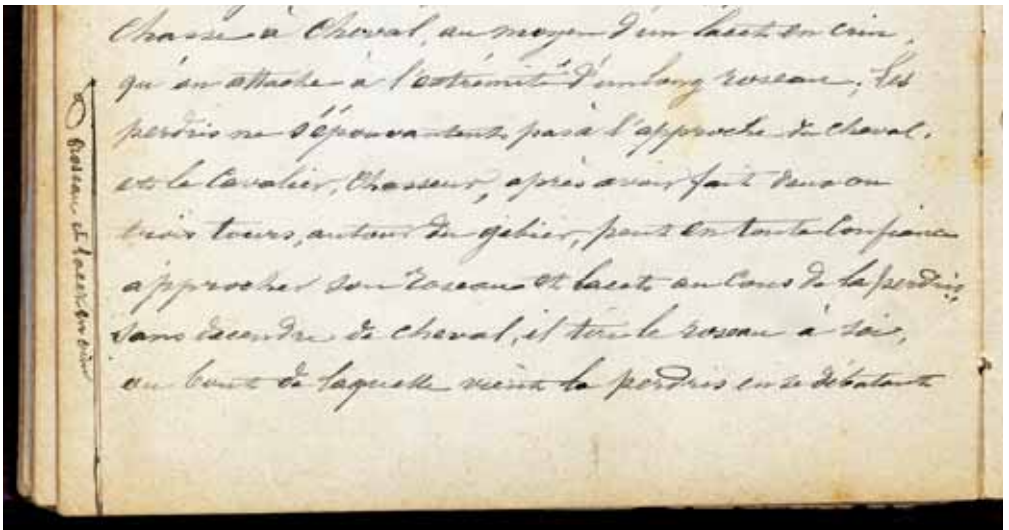 Chasse à Cheval, au moyen d'un lacet en crin,
qu'on attache à l'extrémité d'un long roseau; les
perdris ne s'épouvantent pas à l'approche du cheval,
et le Cavalier, Chasseur, après avoir fait deux ou
trois tours, autour du gibier, peut en toute Confiance
approcher son roseau et lacet au Cous de la perdris,
sans decendre de cheval, il tire le roseau à soi,
au bout de laquelle vient la perdris en se débatant
Roseau et lacet en crin